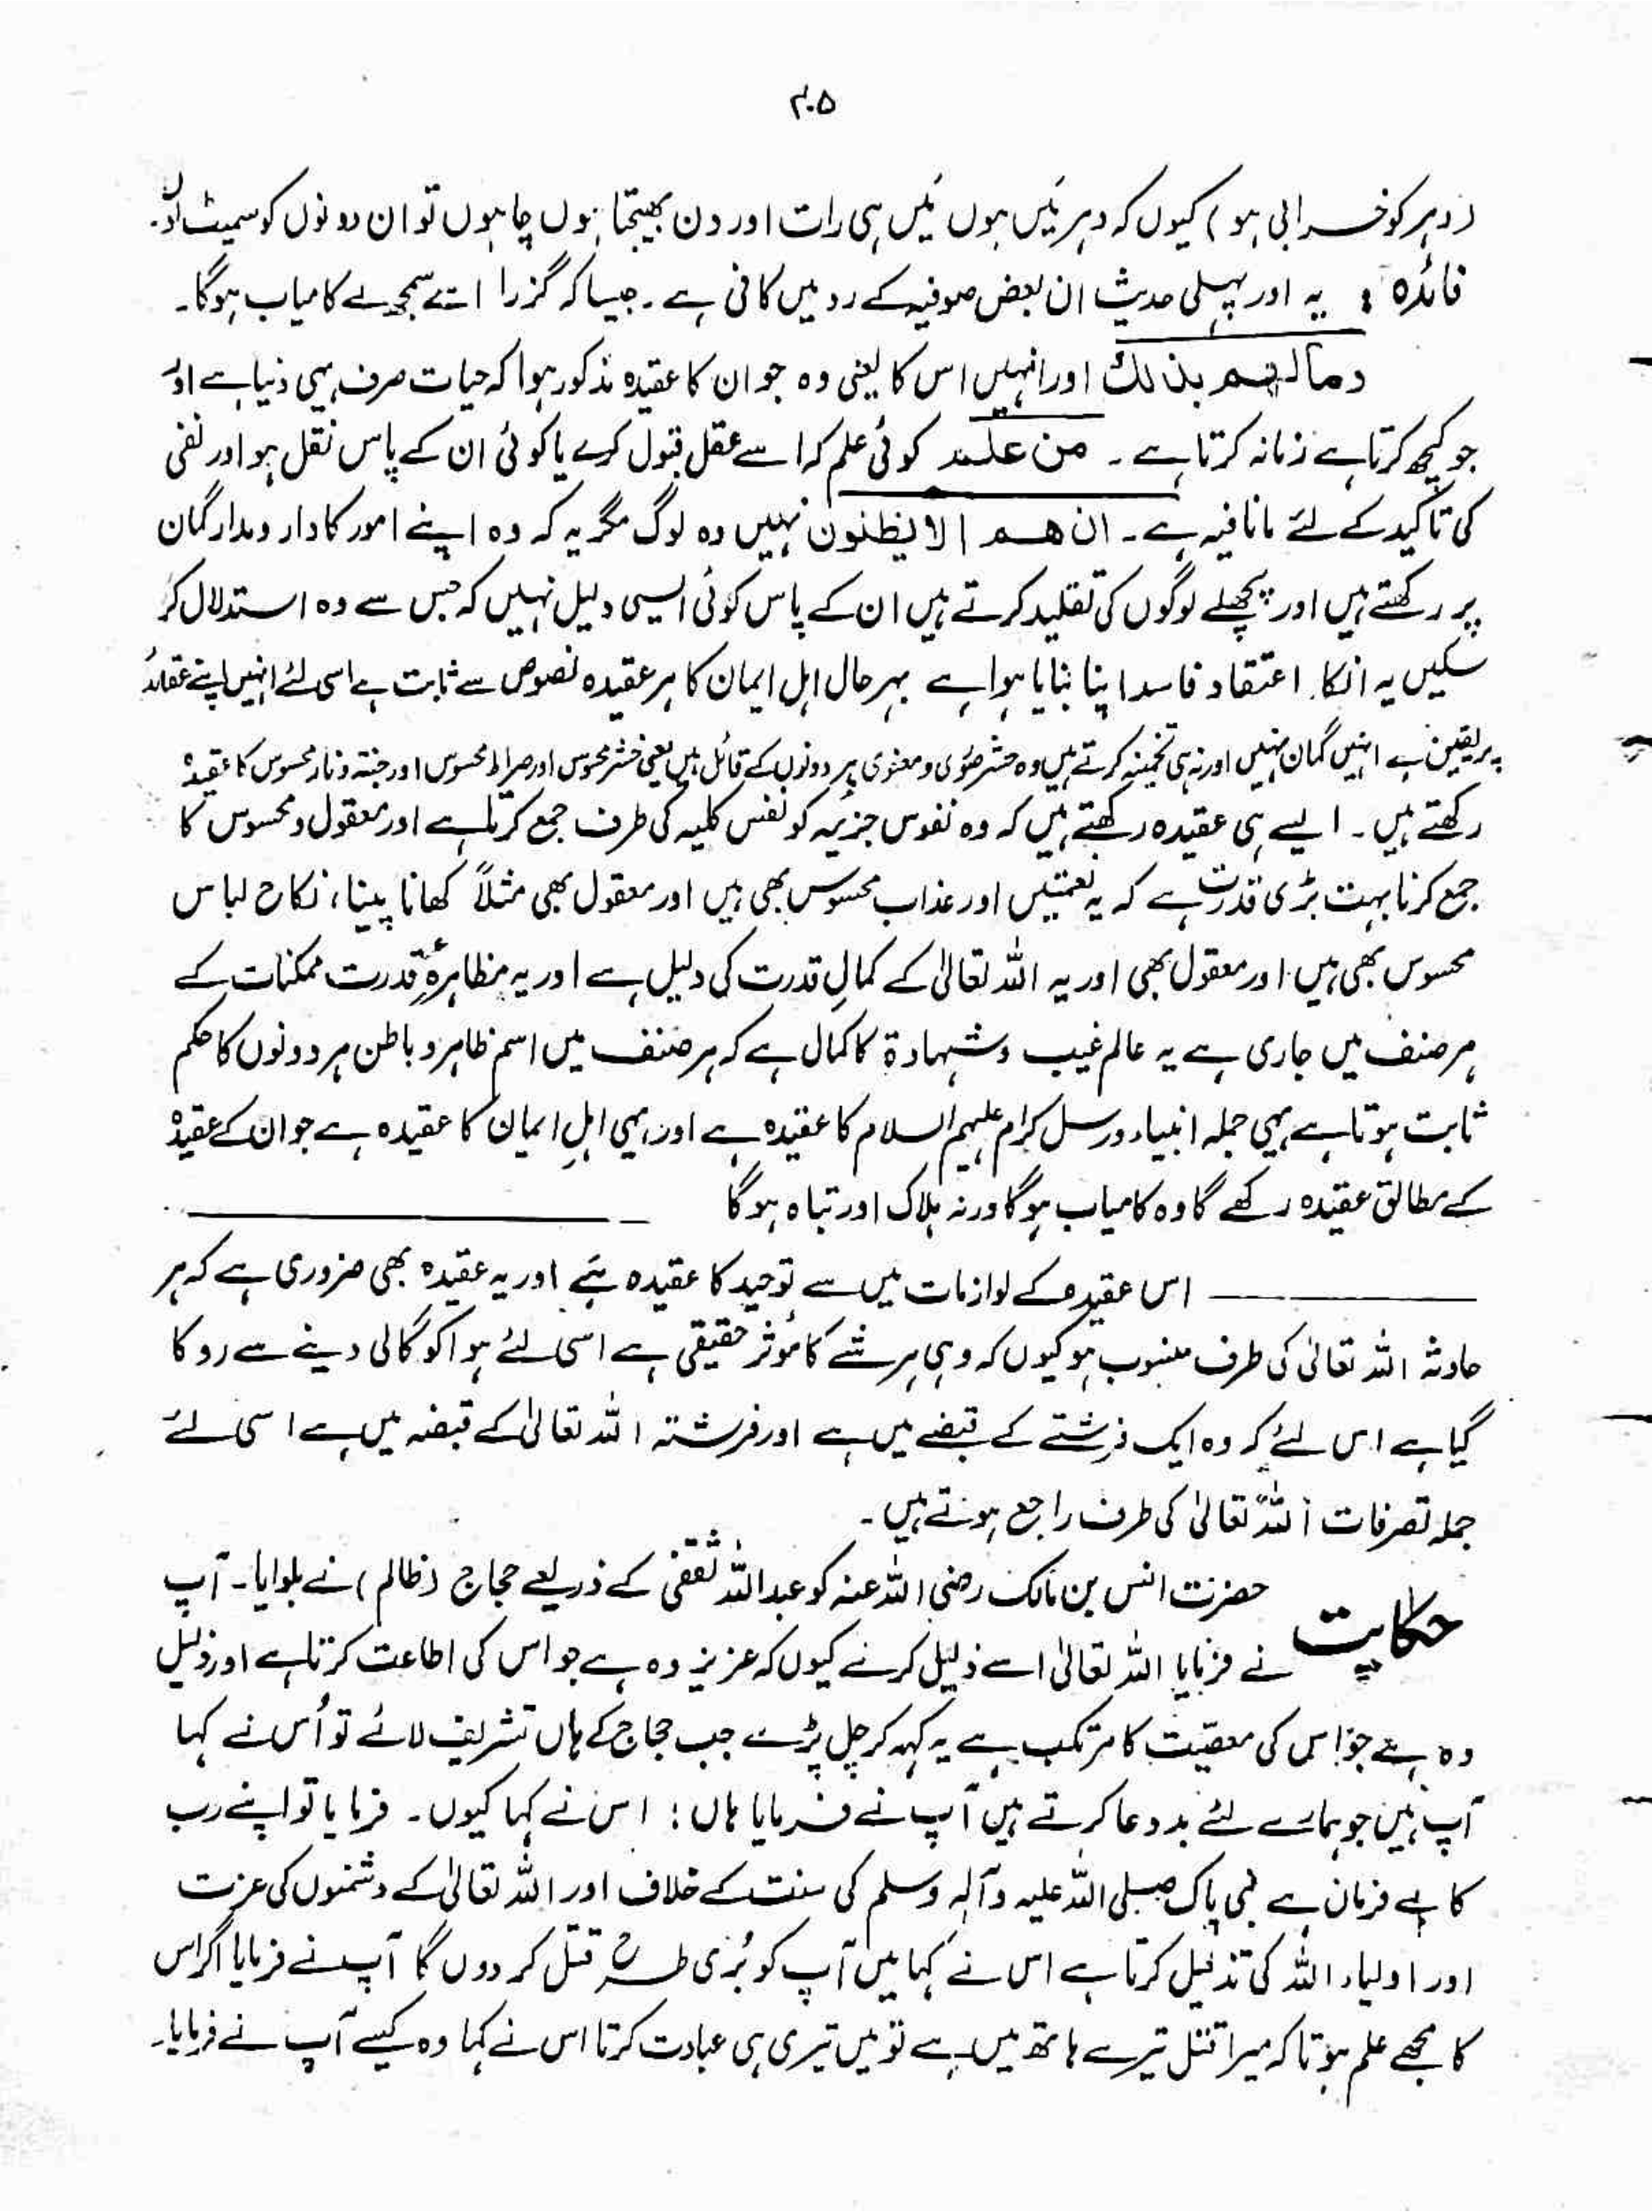 ۴۰۵
(دہر کو خرابی ہو) کیوں کہ دہر مَیں ہوں مَیں ہی رات اور دن بھیجتا ہوں چاہوں تو ان دونوں کو سمیٹ لوں۔
فائدہ : یہ اور پہلی حدیث ان بعض صوفیہ کے رد میں کافی ہے۔ جیسا کہ گزرا اسے سمجھ لے کامیاب ہوگا۔
ومالہم بذلک اور انہیں اس کا یعنی وہ جو ان کا عقیدہ مذکور ہوا کہ حیات صرف یہی دنیا ہے اور
جو کچھ کرتا ہے زمانہ کرتا ہے۔ من علم کوئی علم کہ اسے عقل قبول کرے یا کوئی ان کے پاس نقل ہو اور نفی
کی تاکید کے لئے مانافیہ ہے۔ ان ھم الا یظنون نہیں وہ لوگ مگر یہ کہ وہ اپنے امور کا دار ومدار گمان
پر رکھتے ہیں اور پچھلے لوگوں کی تقلید کرتے ہیں ان کے پاس کوئی ایسی دلیل نہیں کہ جس سے وہ استدلال کر
سکیں یہ انکا اعتقاد فاسد اپنا بنایا ہوا ہے بہرحال اہل ایمان کا ہر عقیدہ نصوص سے ثابت ہے اسی لئے انہیں اپنے عقائد
پر یقین ہے انہیں گمان نہیں اور نہ ہی تخمینہ کرتے ہیں وہ حشر صوری و معنوی ہر دونوں کے قائل ہیں یعنی حشر محسوس اور صراط محسوس اور جنۃ و نار محسوس کا عقیدہ
رکھتے ہیں۔ ایسے ہی عقیدہ رکھتے ہیں کہ وہ نفوس جزیہ کو نفس کلیہ کی طرف جمع کرتا ہے اور معقول و محسوس کا
جمع کرنا بہت بڑی قدرت ہے کہ یہ نعمتیں اور عذاب محسوس بھی ہیں اور معقول بھی مثلاً کھانا پینا، نکاح لباس
محسوس بھی ہیں اور معقول بھی اور یہ اللہ تعالیٰ کے کمالِ قدرت کی دلیل ہے اور یہ مظاہرۂ قدرت ممکنات کے
ہر صنف میں جاری ہے یہ عالم غیب و شہادۃ کا کمال ہے کہ ہر صنف میں اسم ظاہر و باطن ہر دونوں کا حکم
ثابت ہوتا ہے یہی جملہ انبیاء و رسل کرام علیہم السلام کا عقیدہ ہے اور یہی اہلِ ایمان کا عقیدہ ہے جو ان کے عقیدہ
کے مطابق عقیدہ رکھے گا وہ کامیاب ہوگا ورنہ ہلاک اور تباہ ہوگا
اس عقیدہ کے لوازمات میں سے توحید کا عقیدہ ہَے اور یہ عقیدہ بھی ضروری ہے کہ ہر
حادثہ اللہ تعالیٰ کی طرف منسوب ہو کیوں کہ وہی ہر شے کا مُوثر حقیقی ہے اسی لئے ہوا کو گالی دینے سے روکا
گیا ہے اس لئے کہ وہ ایک فرشتے کے قبضے میں ہے اور فرشتہ اللہ تعالیٰ کے قبضہ میں ہے اسی لئے
جملہ تصرفات اللہ تعالیٰ کی طرف راجع ہوتے ہیں۔
حکایت حضرت انس بن مالک رضی اللہ عنہ کو عبداللہ ثقفی کے ذریعے حجاج (ظالم) نے بلوایا۔ آپ
نے فرمایا اللہ تعالیٰ اسے ذلیل کرے کیوں کہ عزیز وہ ہے جو اس کی اطاعت کرتا ہے اور ذلیل
وہ ہے جو اس کی معصیت کا مرتکب ہے یہ کہہ کر چل پڑے جب حجاج کے ہاں تشریف لائے تو اُس نے کہا
آپ ہیں جو ہمارے لئے بددعا کرتے ہیں آپ نے فرمایا ہاں : اس نے کہا کیوں۔ فرمایا تو اپنے رب
کا بے فرمان ہے نبی پاک صلی اللہ علیہ وآلہ وسلم کی سنت کے خلاف اور اللہ تعالیٰ کے دشمنوں کی عزت
اور اولیاء اللہ کی تذلیل کرتا ہے اس نے کہا میں آپ کو بُری طرح قتل کر دوں گا آپ نے فرمایا اگر اس
کا مجھے علم ہوتا کہ میرا قتل تیرے ہاتھ میں ہے تو میں تیری ہی عبادت کرتا اس نے کہا وہ کیسے آپ نے فرمایا۔